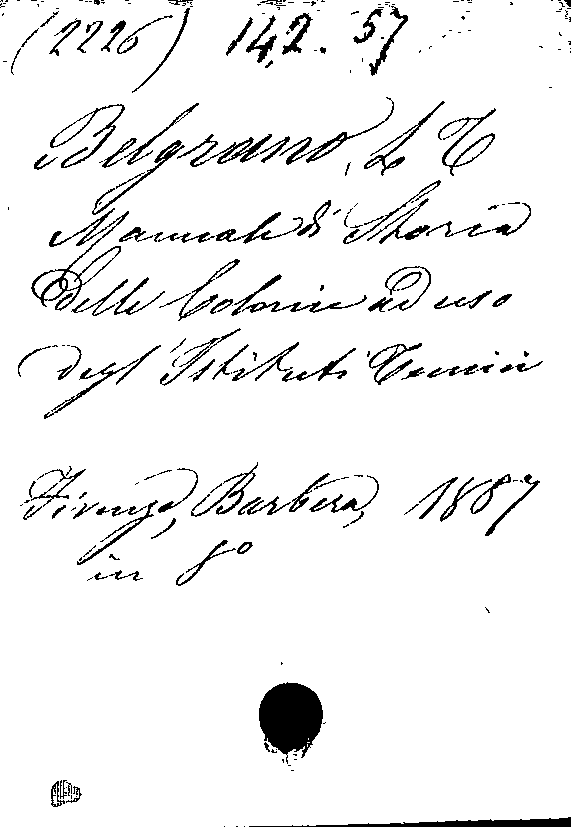 (2226) 142. 57
Belgrano, L T
Manuale di Storia
delle Colonie ad uso
degl'Istituti Tecnici
Firenze, Barbera, 1887
in 8º